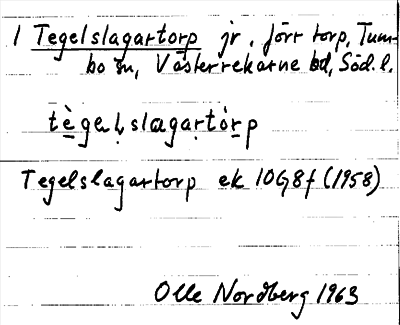 1 Tegelslagartorp jr. förr torp, Tum-
bo sn, Västerrekarne hd, Söd. l.
tègeḷslagaṛtòrp
Tegelslagartorp ek 10G8f (1958)
Olle Nordberg 1963